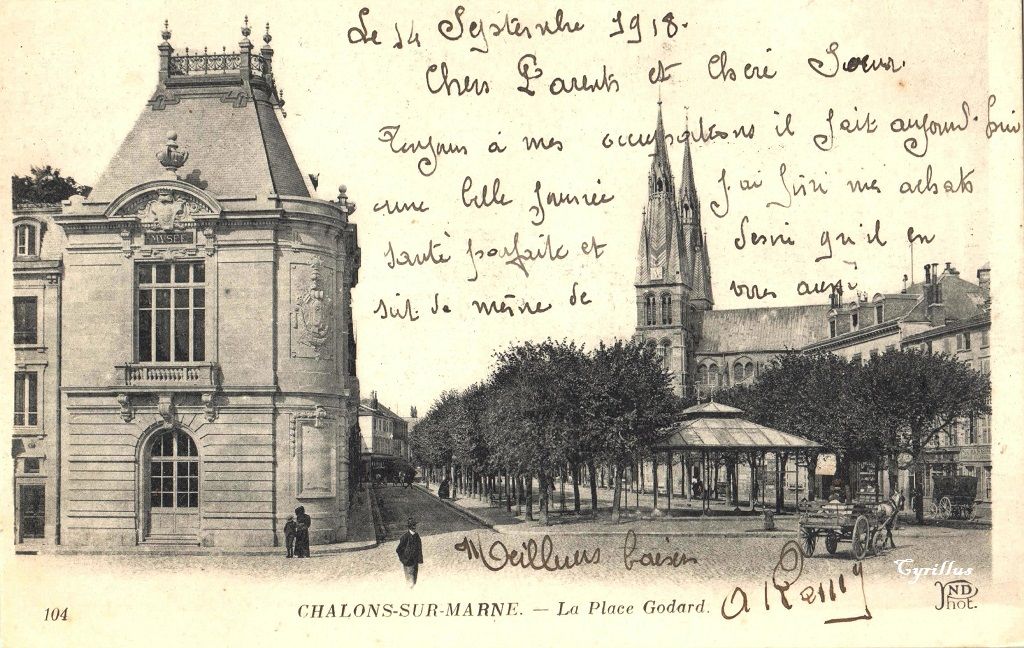 Le 14 Septembre 1918.
Chers Parents et Chère Soeur.
Toujours à mes occupations il fait aujourd'hui
une belle journée J'ai fini mes achats
Santé parfaite et Désire qu'il en
soit de même de vous aussi
MVSEE
Meilleurs baisers
Remy
Cyrillus
104
CHALONS-SUR-MARNE. — La Place Godard.
ND
Phot.